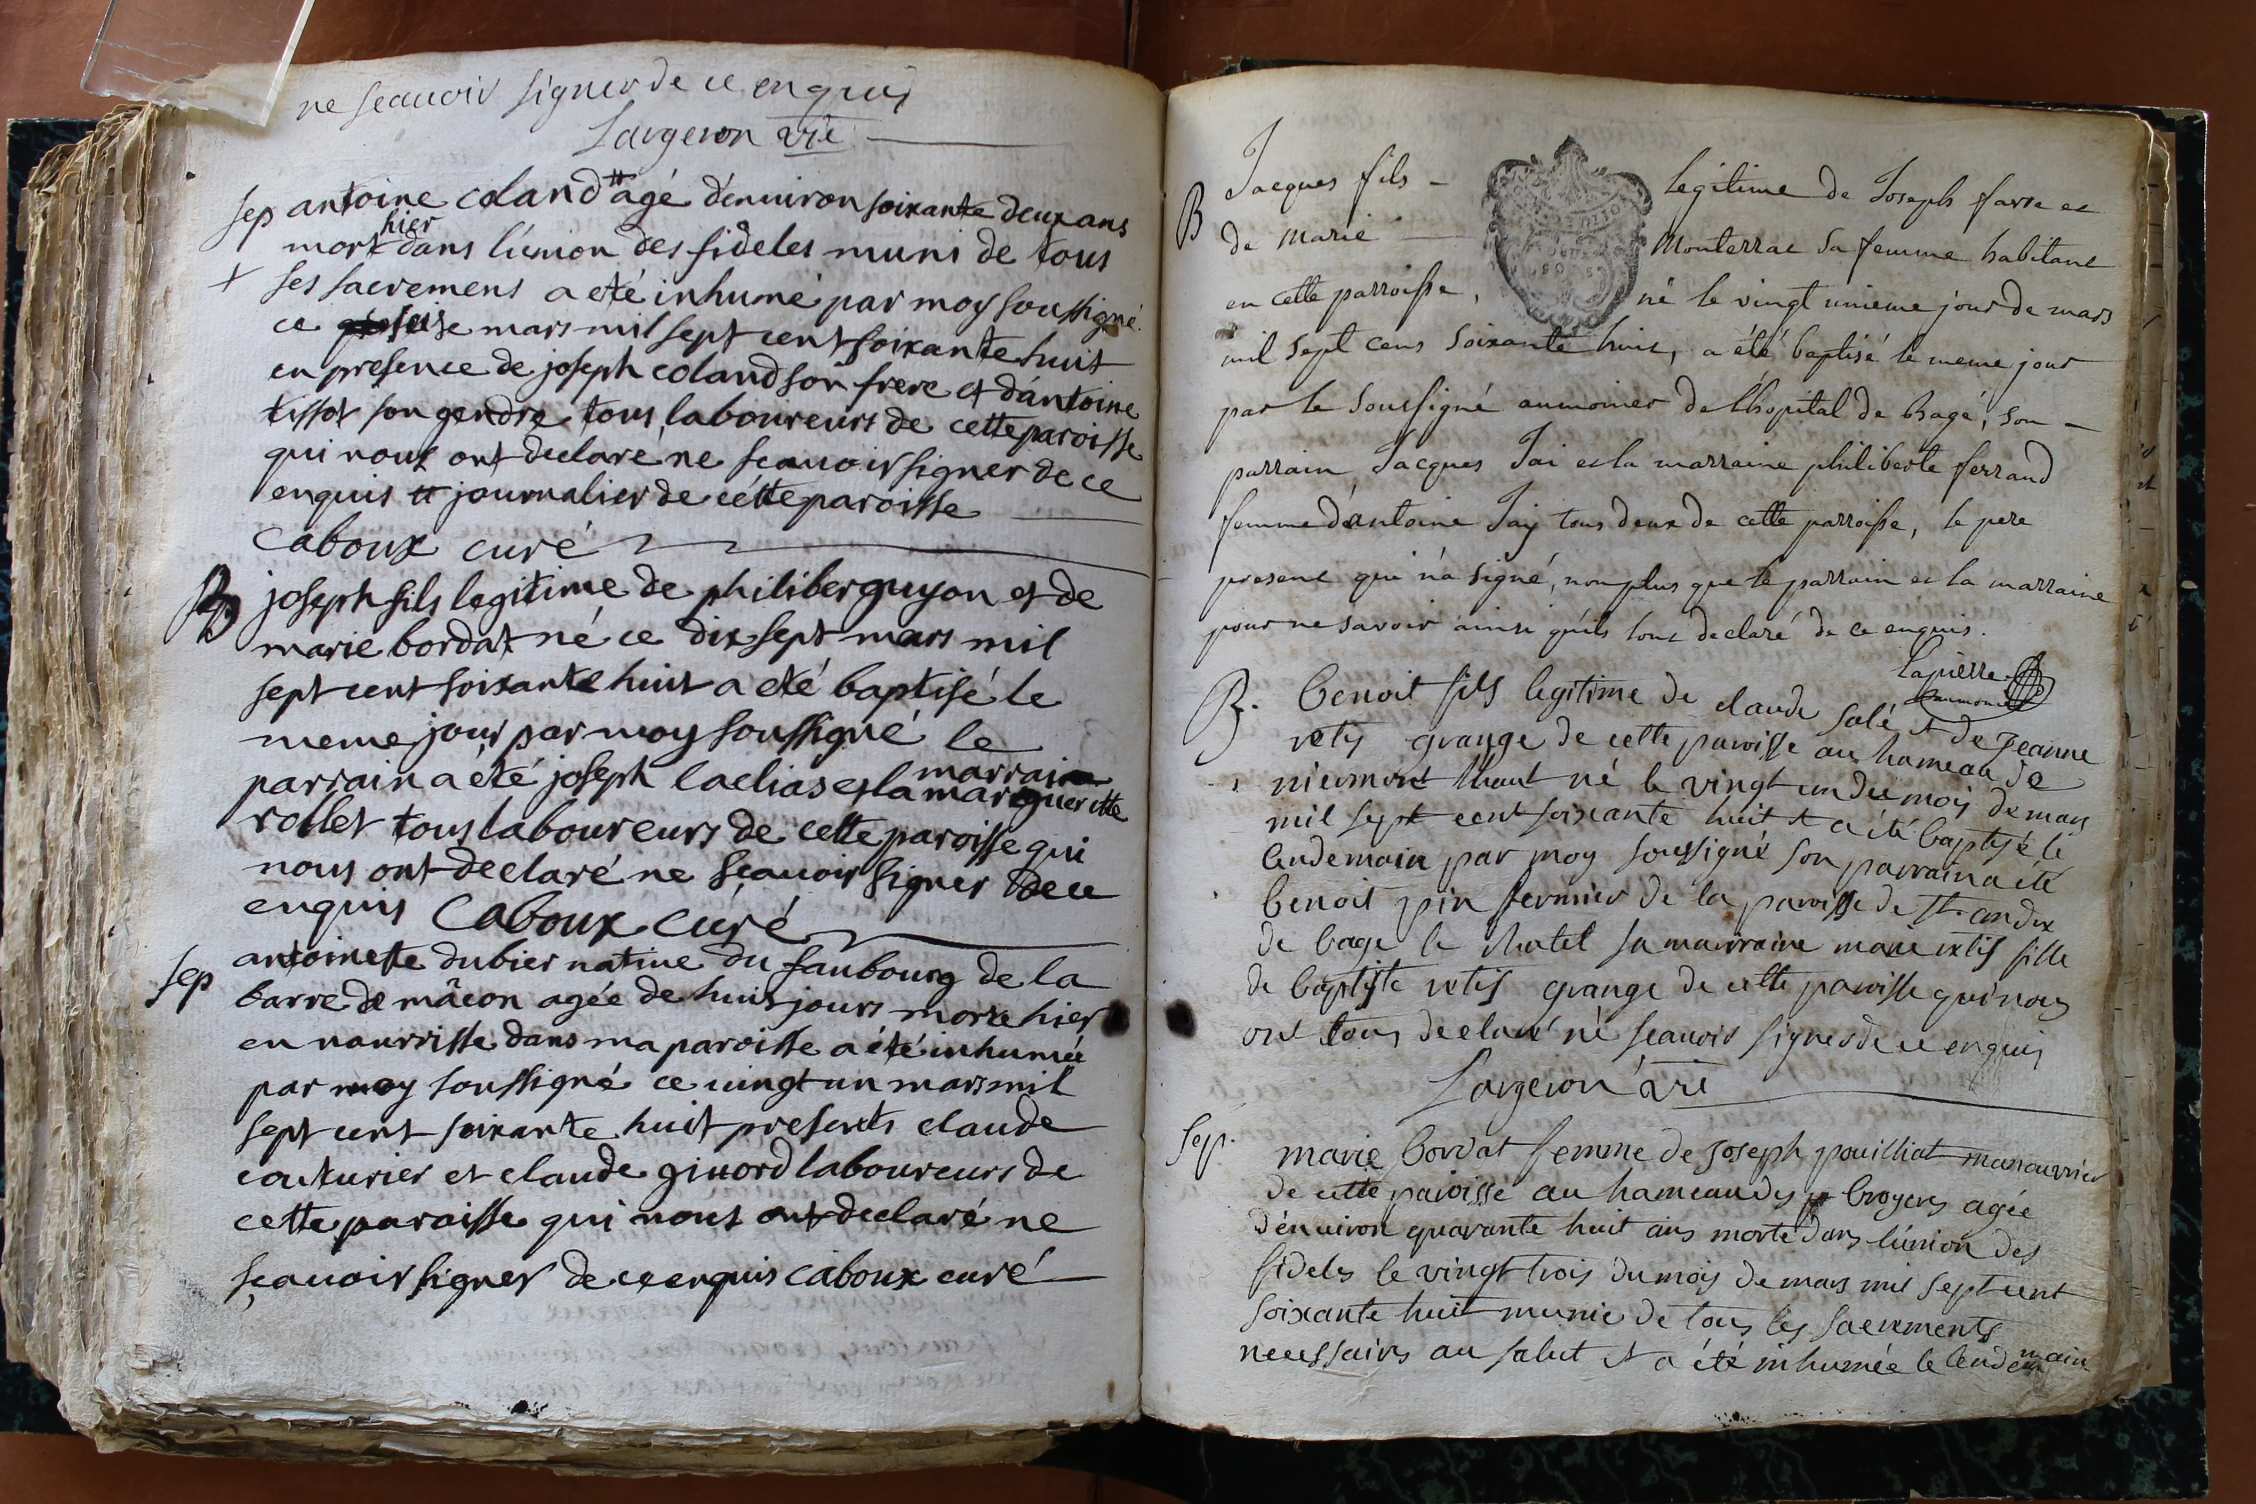 ne scauoir signer de ce enquis
Largeron vic
sep antoine coland # agé d'enuiron soixante deux ans
mort hier dans l'union des fideles muni de tous
+ ses sacremens a eté inhumé par moy soussigné
ce seise mars mil sept cent soixante huit
en presence de joseph coland son frere et d'antoine
tissot son gendre tous laboureurs de cette paroisse
qui nous ont declaré ne sçauoir signer de ce
enquis # journalier de cette paroisse
Caboux curé
B joseph fils legitime de philiber guyon et de
marie bordat né ce dix sept mars mil
sept cent soixante huit a eté baptisé le
meme jour par moy soussigné le
parrain a été joseph laclias et la marraine
margueritte
rollet tous laboureurs de cette paroisse qui
nous ont declaré ne sçauoir signer de ce
enquis Caboux curé
sep antoinette dubier natiue du faubourg de la
barre de mâcon agée de huit jours morte hier
en nourrisse dans ma paroisse a été inhumée
par moy soussigné ce uingt un mars mil
sept cent soixante huit presents claude
couturier et claude giuord laboureurs de
cette paroisse qui nous ont declaré ne
sçauoir signer de ce enquis caboux curé
B Jacques fils - legitime de Joseph farre et
de marie Monterrat sa femme habitant
en cette parroisse, né le vingt unieme jour de mars
mil sept cens soixante huit, a été baptisé le meme jour
par le soussigné aumonier de l'hopital de bagé, son -
parrain Jacques Jai et la marraine philiberte ferrand
femme d'antoine Jai tous deux de cette parroisse, le pere
present qui n'a signé, non plus que le parrain et la marraine
pour ne savoir ainsi qu'ils l'ont declaré de ce enquis.
Lapierre
aumonier
B. benoit fils legitime de claude salé et de Jeanne
retis grange de cette paroisse au hameau de
niermont haut né le vingt un du mois de mars
mil sept cent soixante huit et a été baptisé le
lendemain par moy soussigné son parrain a été
benoit pin fermier de la paroisse de St. andre
de bage le chatel sa marraine marie retis fille
de baptiste retis grange de cette paroisse qui nous
ont tous declaré ne scauoir signer de ce enquis
Largeron vic
sep. marie bordat femme de joseph pouilliat manouvrier
de cette paroisse au hameau des broyers agée
d'enuiron quarante huit ans morte dans l'union des
fideles le vingt trois du mois de mars mil sept cent
soixante huit munie de tous les sacrements
necessaires au salut et a été inhumée le lendemain